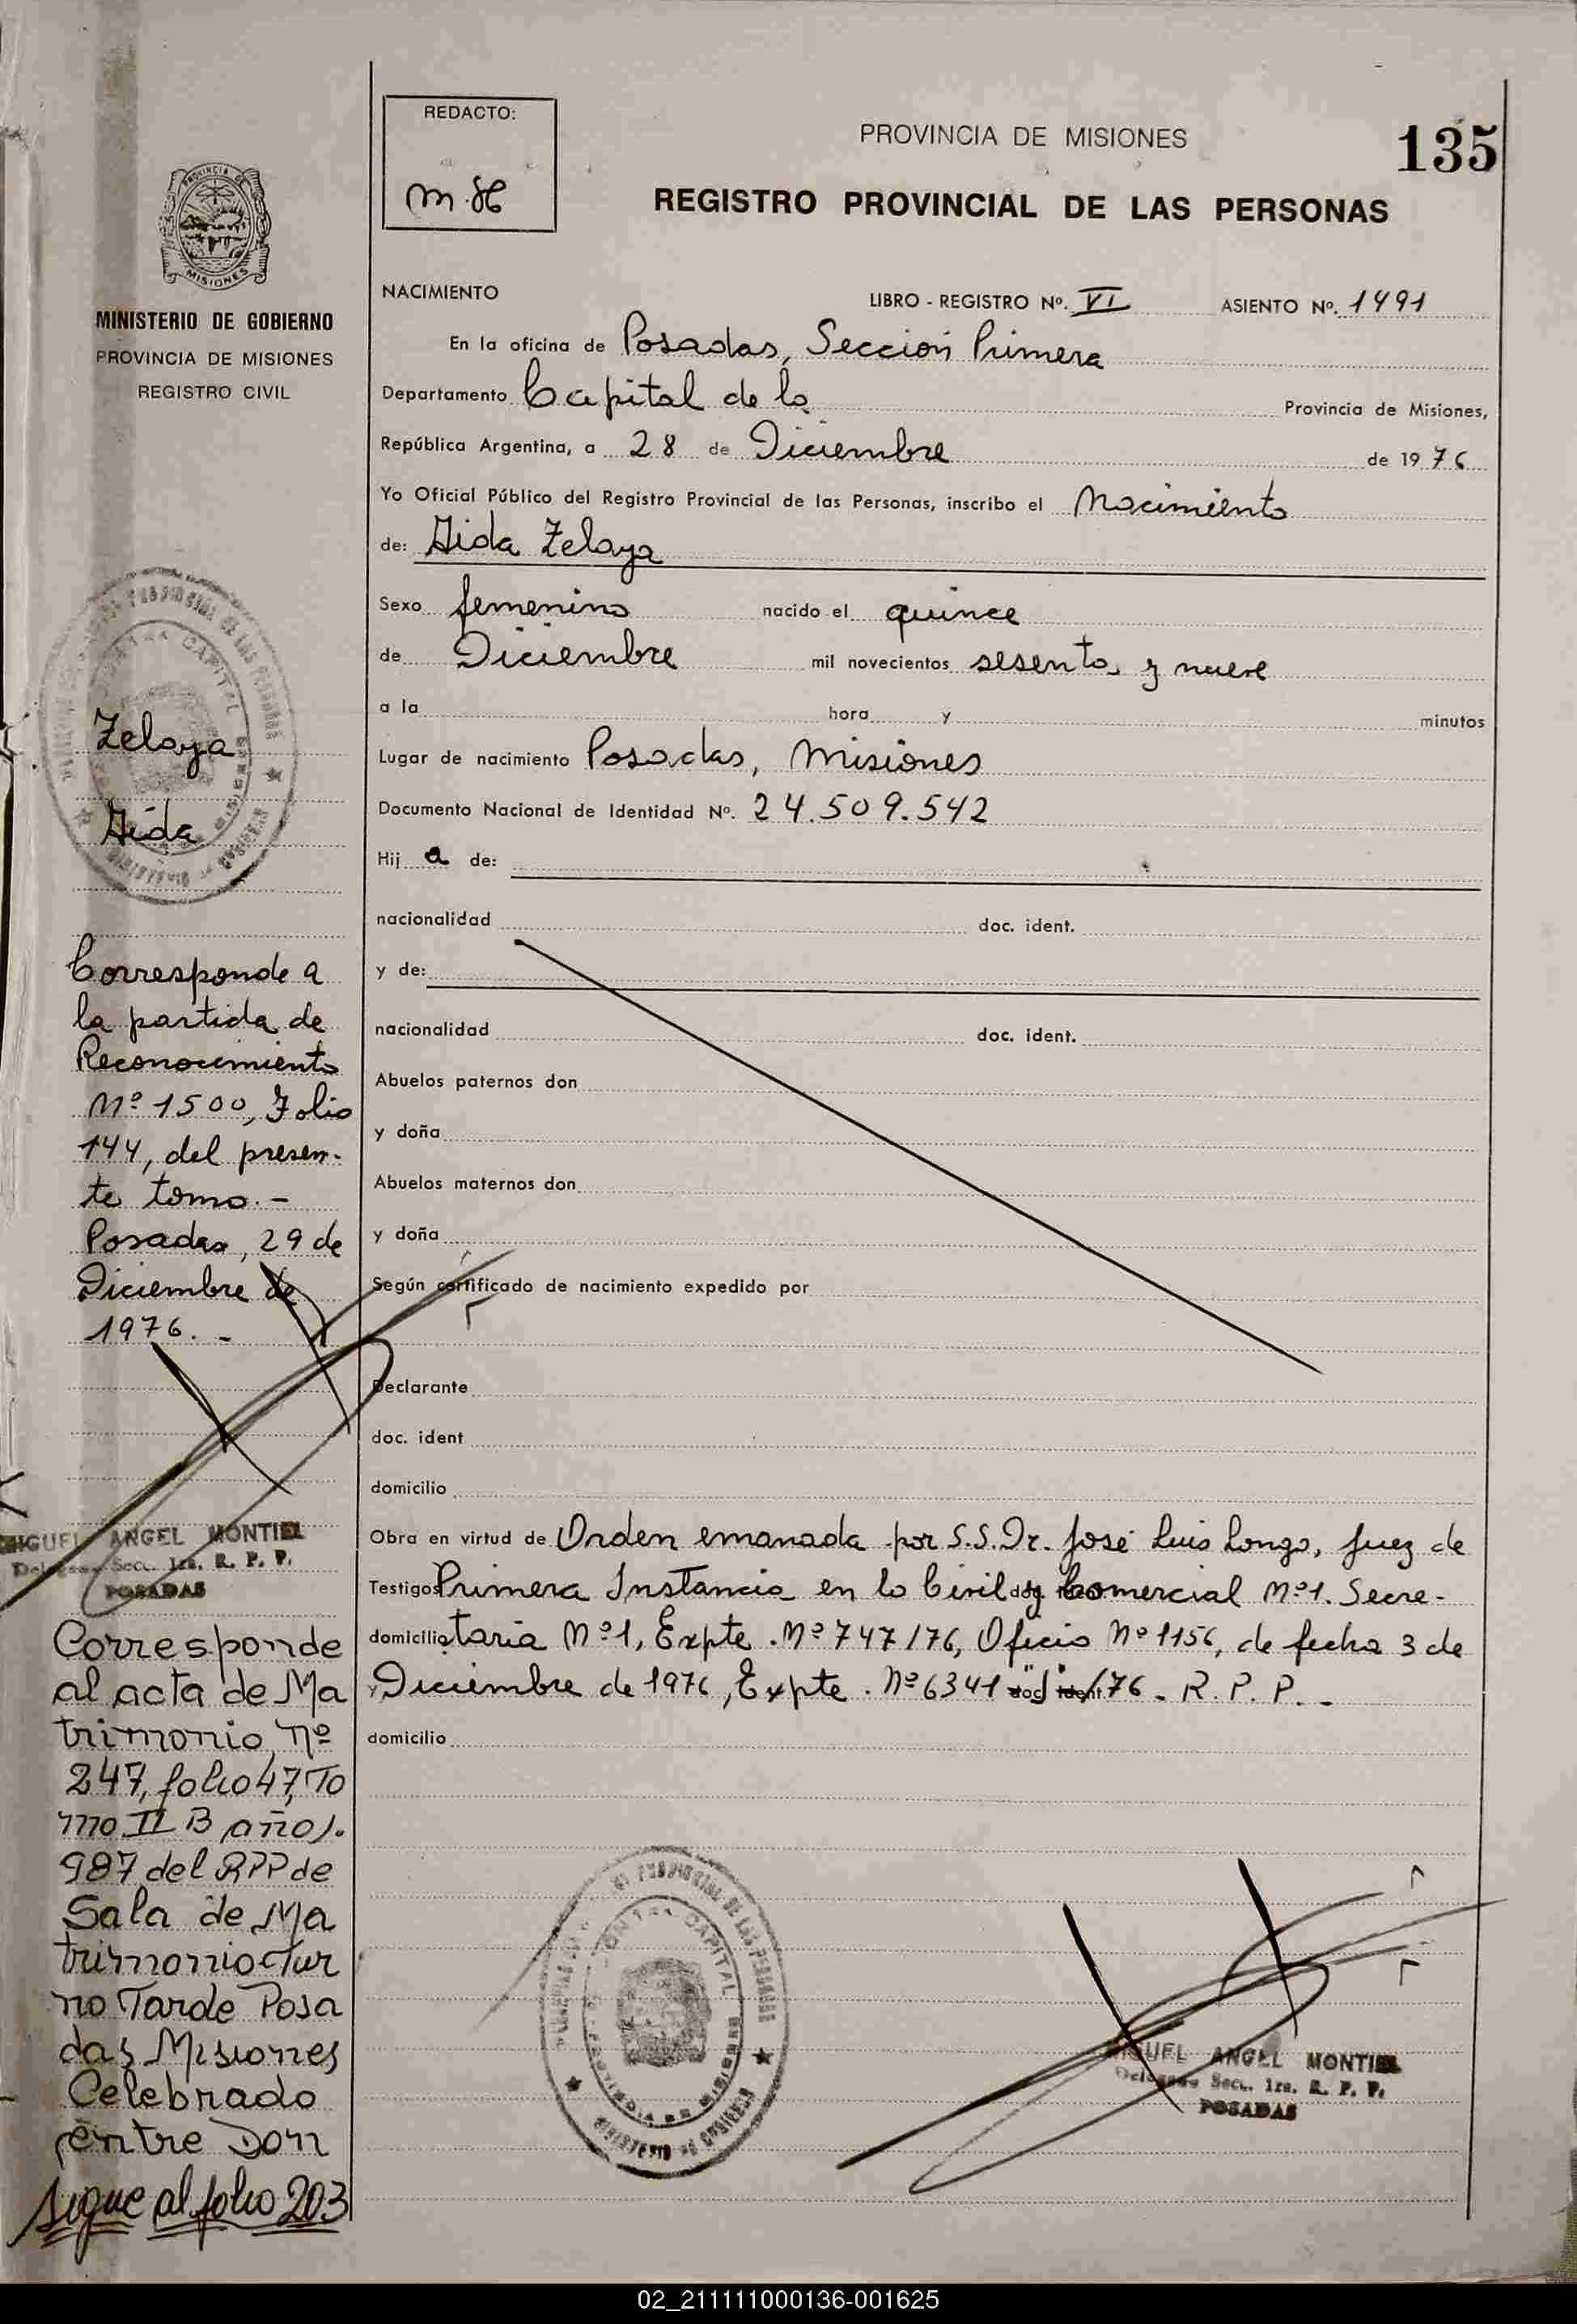 REDACTO:
PROVINCIA DE MISIONES
135
REGISTRO PROVINCIAL DE LAS PERSONAS
PROVINCIA DE
MISIONES
MINISTERIO DE GOBIERNO
PROVINCIA DE MISIONES
REGISTRO CIVIL
NACIMIENTO LIBRO - REGISTRO Nº. VI ASIENTO Nº. 1491
En la oficina de Posadas, Sección Primera
Departamento Capital de la Provincia de Misiones,
República Argentina, a 28 de Diciembre de 1976
Yo Oficial Público del Registro Provincial de las Personas, inscribo el Nacimiento
de: Aida Zelaya
Sexo femenino nacido el quince
de Diciembre mil novecientos sesenta y nueve
a la hora y minutos
Lugar de nacimiento Posadas, Misiones
Documento Nacional de Identidad Nº. 24.509.542
Hij a de:
nacionalidad doc. ident.
y de:
nacionalidad doc. ident.
Abuelos paternos don
y doña
Abuelos maternos don
y doña
Según certificado de nacimiento expedido por
Declarante
doc. ident
domicilio
Obra en virtud de Orden emanada por S.S. Dr. José Luis Longo, Juez de
Testigo Primera Instancia en lo Civil y Comercial Nº 1. Secre-
domicilio taria Nº 1, Expte. Nº 747/76, Oficio Nº 1156, de fecha 3 de
y Diciembre de 1976, Expte. Nº 6341 "J"/76 - R. P. P. -
domicilio
MIGUEL ANGEL MONTIEL
Delegado Secc. 1ra. R. P. P.
POSADAS
Zelaya
Aida
Corresponde a
la partida de
Reconocimiento
Nº 1500, Folio
144, del presen-
te tomo. -
Posadas, 29 de
Diciembre de
1976. -
MIGUEL ANGEL MONTIEL
Delegado Secc. 1ra. R. P. P.
POSADAS
Corresponde
al acta de Ma
trimonio, nº
247, folio 47, To
mo II B año 1.
987 del RPP de
Sala de Ma
trimonio Tur
no Tarde Posa
das Misiones
Celebrado
entre Don
sigue al folio 203
02_211111000136-001625